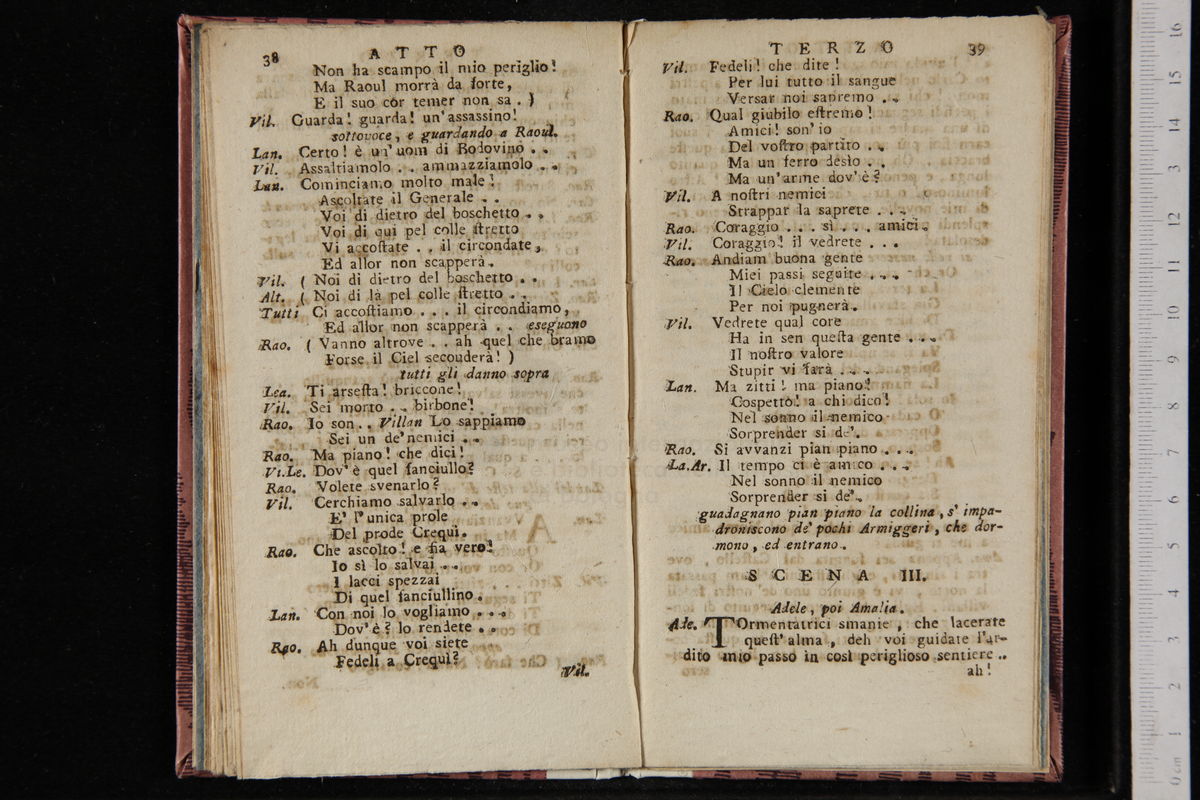 38 ATTO
Non ha scampo il mio periglio!
Ma Raoul morrà da forte,
E il suo cor temer non sa. )
Vil. Guarda! guarda! un'assassino!
sottovoce, e guardando a Raoul.
Lan. Certo! è un' uom di Bodovino . .
Vil. Assaltiamolo . . ammazziamolo . .
Lan. Cominciamo molto male!
Ascoltate il Generale . .
Voi di dietro del boschetto . .
Voi di qui pel colle stretto
Vi accostate . . il circondate,
Ed allor non scapperà.
Vil. ( Noi di dietro del boschetto . .
Alt. ( Noi di là pel colle stretto . .
Tutti Ci accostiamo . . . il circondiamo,
Ed allor non scapperà . . eseguono
Rao. ( Vanno altrove . . ah quel che bramo
Forse il Ciel seconderà! )
tutti gli danno sopra
Lea. Ti arresta! briccone!
Vil. Sei morto . . birbone!
Rao. Io son . . Villan Lo sappiamo
Sei un de' nemici . .
Rao. Ma piano! che dici!
Vi.Le. Dov' è quel fanciullo?
Rao. Volete svenarlo?
Vil. Cerchiamo salvarlo . .
E' l'unica prole
Del prode Crequì.
Rao. Che ascolto! e fia vero!
Io sì lo salvai . .
I lacci spezzai
Di quel fanciullino.
Lan. Con noi lo vogliamo . . .
Dov' è? lo rendete . .
Rao. Ah dunque voi siete
Fedeli a Crequì?
Vil.
TERZO 39
Vil. Fedeli! che dite!
Per lui tutto il sangue
Versar noi sapremo . .
Rao. Qual giubilo estremo!
Amici! son' io
Del vostro partito . .
Ma un ferro desìo . .
Ma un'arme dov' è?
Vil. A nostri nemici
Strappar la saprete . . .
Rao. Coraggio . . . sì . . . amici.
Vil. Coraggio! il vedrete . . .
Rao. Andiam buona gente
Miei passi seguite . . .
Il Cielo clemente
Per noi pugnerà.
Vil. Vedrete qual core
Ha in sen questa gente . . .
Il nostro valore
Stupir vi farà . . .
Lan. Ma zitti! ma piano!
Cospetto! a chi dico!
Nel sonno il nemico
Sorprender si de'.
Rao. Si avvanzi pian piano . . .
La.Ar. Il tempo ci è amico . . .
Nel sonno il nemico
Sorprender si de'.
guadagnano pian piano la collina, s' impa-
droniscono de' pochi Armiggeri, che dor-
mono, ed entrano.
SCENA III.
Adele, poi Amalia.
Ade. TOrmentatrici smanie, che lacerate
quest' alma, deh voi guidate l'ar-
dito mio passo in così periglioso sentiere ..
ah!
0 cm 1 2 3 4 5 6 7 8 9 10 11 12 13 14 15 16